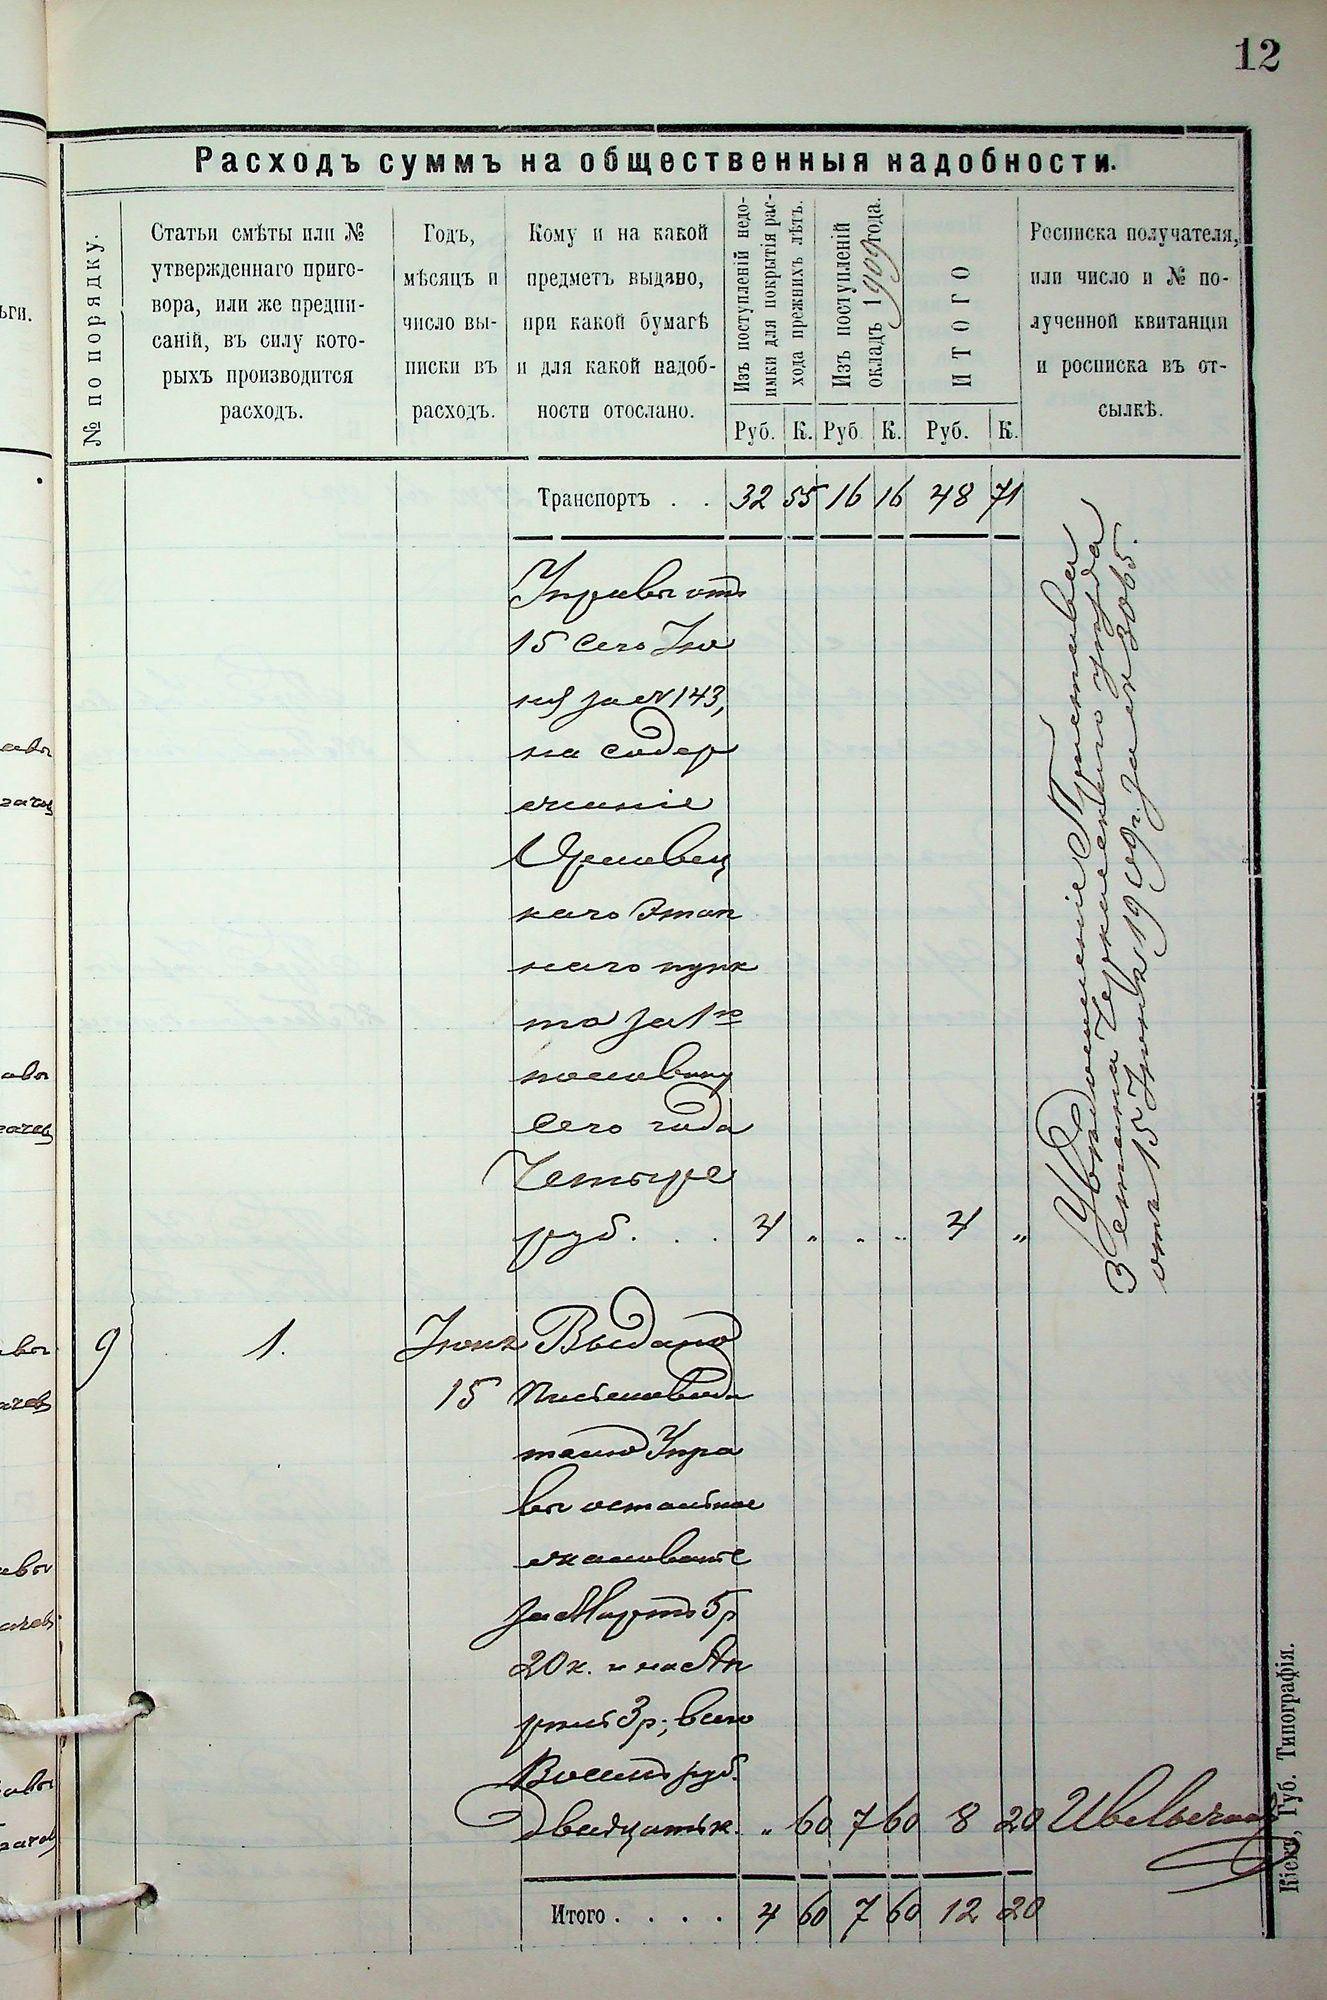 12
Расходъ суммъ на общественныя надобности.
№ по порядку.
Статьи смѣты или №
утвержденнаго приго-
вора, или же предпи-
саній, въ силу кото-
рыхъ производится
расходъ.
Годъ,
мѣсяцъ и
число вы-
писки въ
расходъ.
Кому и на какой
предметъ выдано,
при какой бумагѣ
и для какой надоб-
ности отослано.
Изъ поступленій недо-
имки для покрытія рас-
хода прежнихъ лѣтъ.
Изъ поступленій
окладъ 1909 года.
ИТОГО
Росписка получателя,
или число и № по-
лученной квитанціи
и росписка въ от-
сылкѣ.
Руб. К. Руб. К. Руб. К.
Транспортъ . . 32 55 16 16 48 71
Управы отъ
15 сего Iю
ня за № 143,
на содер
жаніе
каго Этап
наго пунк
та за 1ю
половину
сего года
Четыре
руб. . . . 4 „ . „ 4 „
Увѣдомленіе Пристава
3 стана Черкасскаго уѣзда
отъ 15 Iюня 1909 г. за № 3065.
9 1. Iюня Выдано
15 Письмоводи
телю Упра
вы остальное
жалованье
за Мартъ 5 р
20 к. и на Ап
рель 3 р; всего
Восемь руб.
двадцать к. „ 60 7 60 8 20
Итого . . . . 4 60 7 60 12 20
Кіевъ, Губ. Типографія.